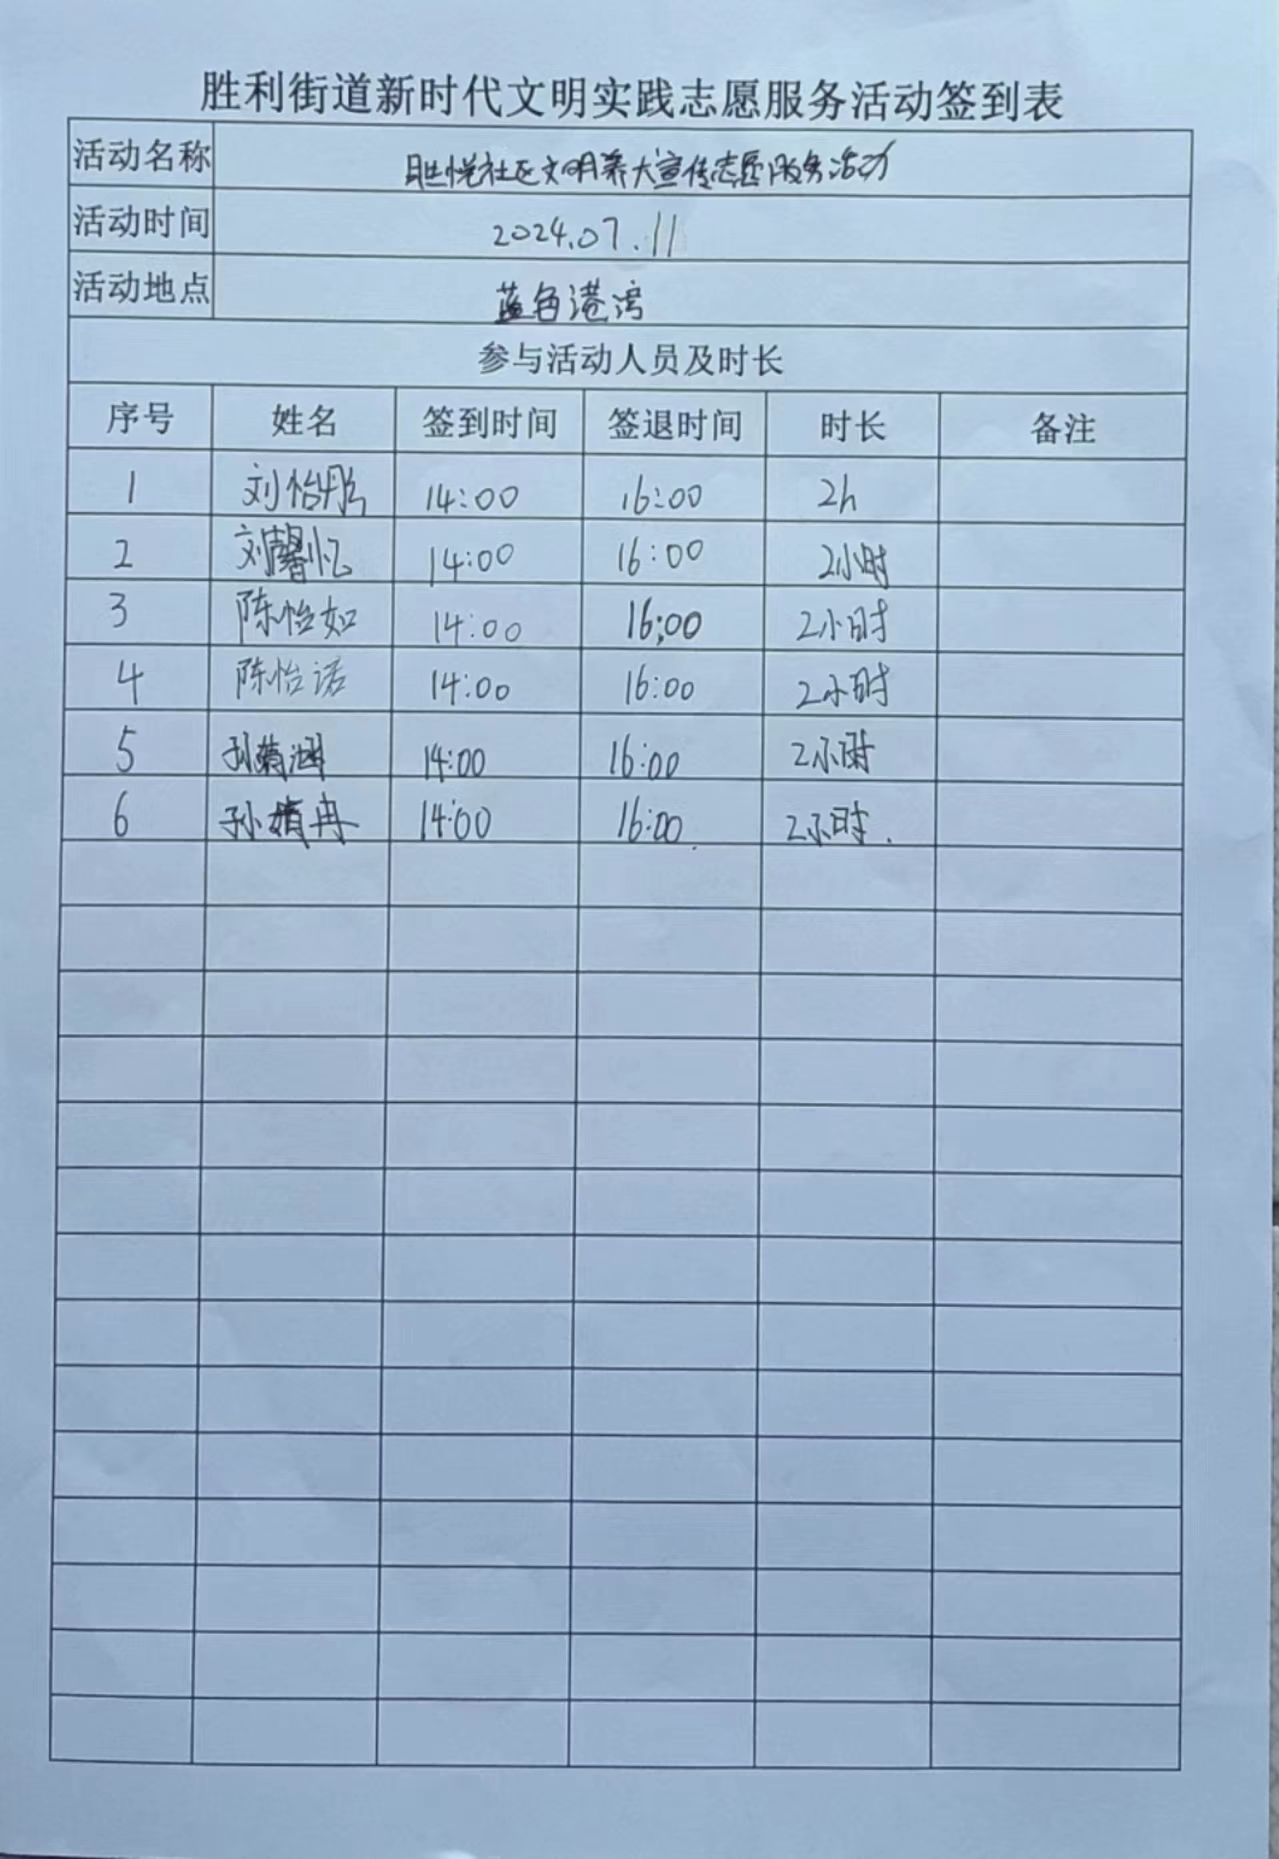 胜利街道新时代文明实践志愿服务活动签到表
活动名称 胜悦社区文明养犬宣传志愿服务活动
活动时间 2024.07.11
活动地点 蓝色港湾
参与活动人员及时长
序号 姓名 签到时间 签退时间 时长 备注
1 刘怡彤 14:00 16:00 2h
2 刘馨忆 14:00 16:00 2小时
3 陈怡如 14:00 16:00 2小时
4 陈怡诺 14:00 16:00 2小时
5 孙菊涵 14:00 16:00 2小时
6 孙婧冉 14:00 16:00 2小时.